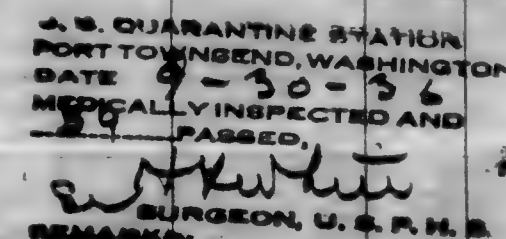 U. S. QUARANTINE STATION
PORT TOWNSEND, WASHINGTON
DATE 9-30-36
MEDICALLY INSPECTED AND
89 PASSED,
SURGEON, U. S. P. H. S.
REMARKS: